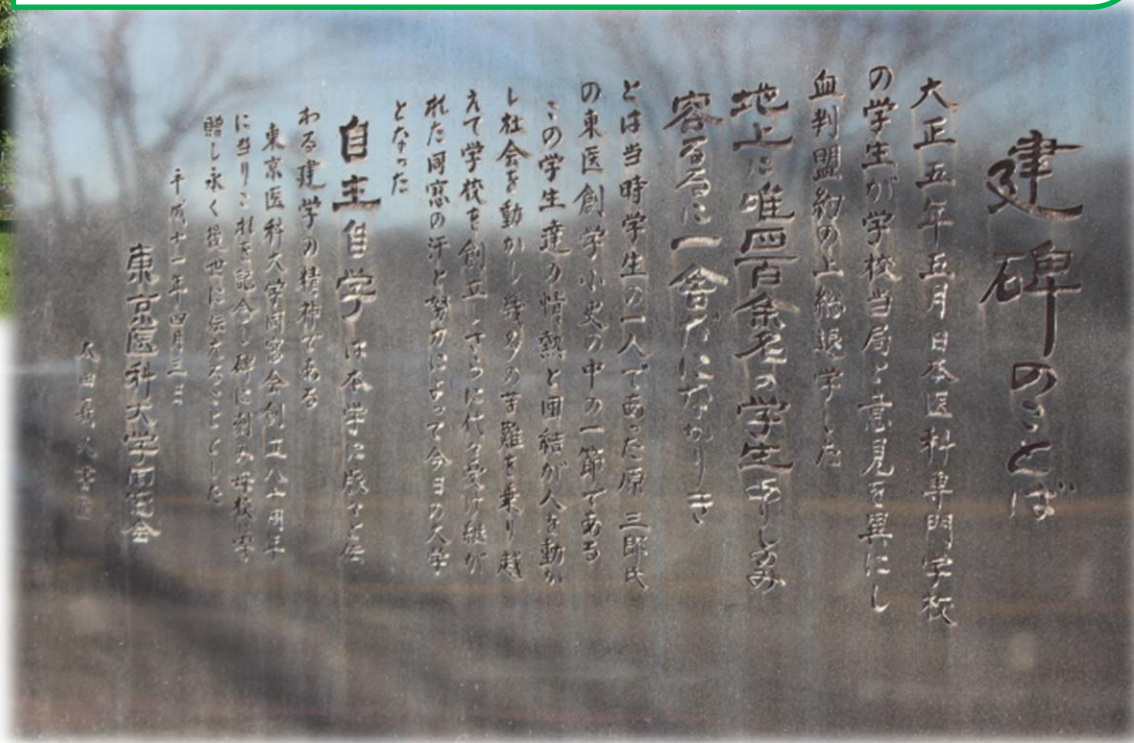 建碑のことば
大正五年五月日本医科専門学校
の学生が学校当局と意見を異にし
血判盟約の上総退学した
地上に唯四百余名の学生ありしのみ
容るるに一舎だになかりき
とは当時学生の一人であった原 三郎氏
の東医創学小史の中の一節である
この学生達の情熱と団結が人を動か
し社会を動かし幾多の苦難を乗り越
えて学校を創立 さらに代々受け継が
れた同窓の汗と努力によって今日の大学
となった
自主自学は本学に脈々と伝
わる建学の精神である
東京医科大学同窓会創立八十周年
に当りこれを記念し碑に刻み母校に寄
贈し永く後世に伝えることとした
平成十一年四月三日
東京医科大学同窓会